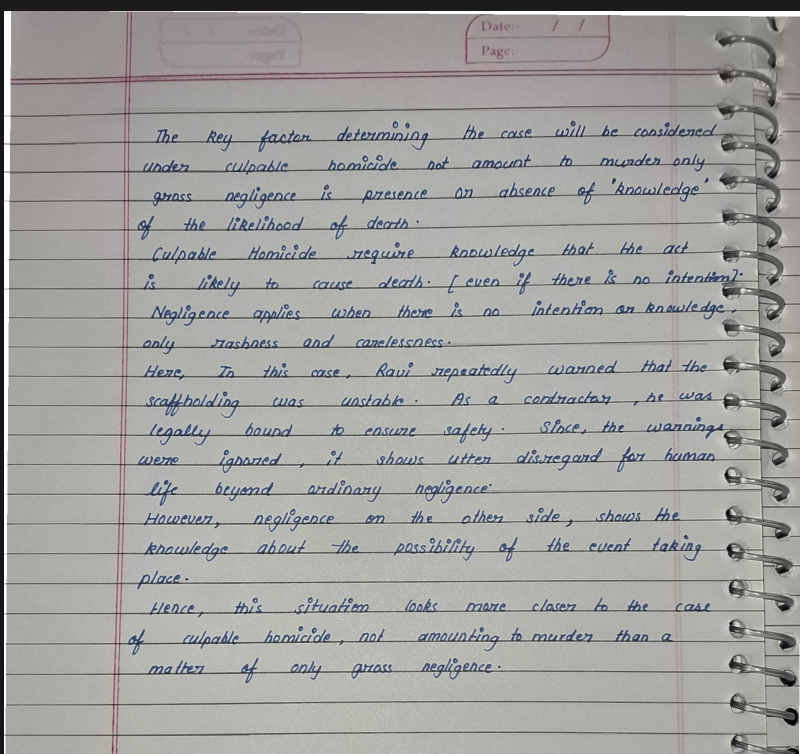 Date:- / /
Page:-
The key factor determining the case will be considered
under culpable homicide not amount to murder only
gross negligence is presence or absence of 'knowledge'
of the likelihood of death.
Culpable Homicide require knowledge that the act
is likely to cause death. [even if there is no intention].
Negligence applies when there is no intention or knowledge,
only rashness and carelessness.
Here, In this case, Ravi repeatedly warned that the
scaffholding was unstable. As a contractor, he was
legally bound to ensure safety. Since, the warnings
were ignored, it shows utter disregard for human
life beyond ordinary negligence.
However, negligence on the other side, shows the
knowledge about the possibility of the event taking
place.
Hence, this situation looks more closer to the case
of culpable homicide, not amounting to murder than a
matter of only gross negligence.